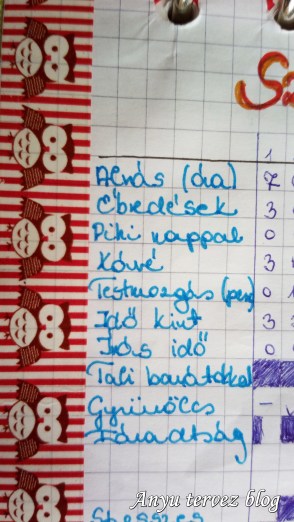 Sz
1
Alvás (óra) 7
Ébredések 3
Pihi nappal 0
Kávé 3
Testmozgás (perc) 0
Idő kint 3
Írás idő 0
Tali barátokkal
Gyümölcs –
Fáradtság
Stresszes
Anyu tervez blog